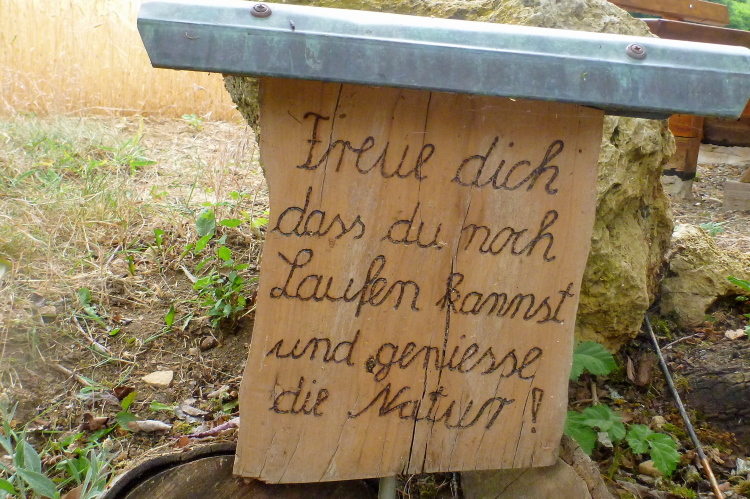 Freue dich
dass du noch
Laufen kannst
und geniesse
die Natur!